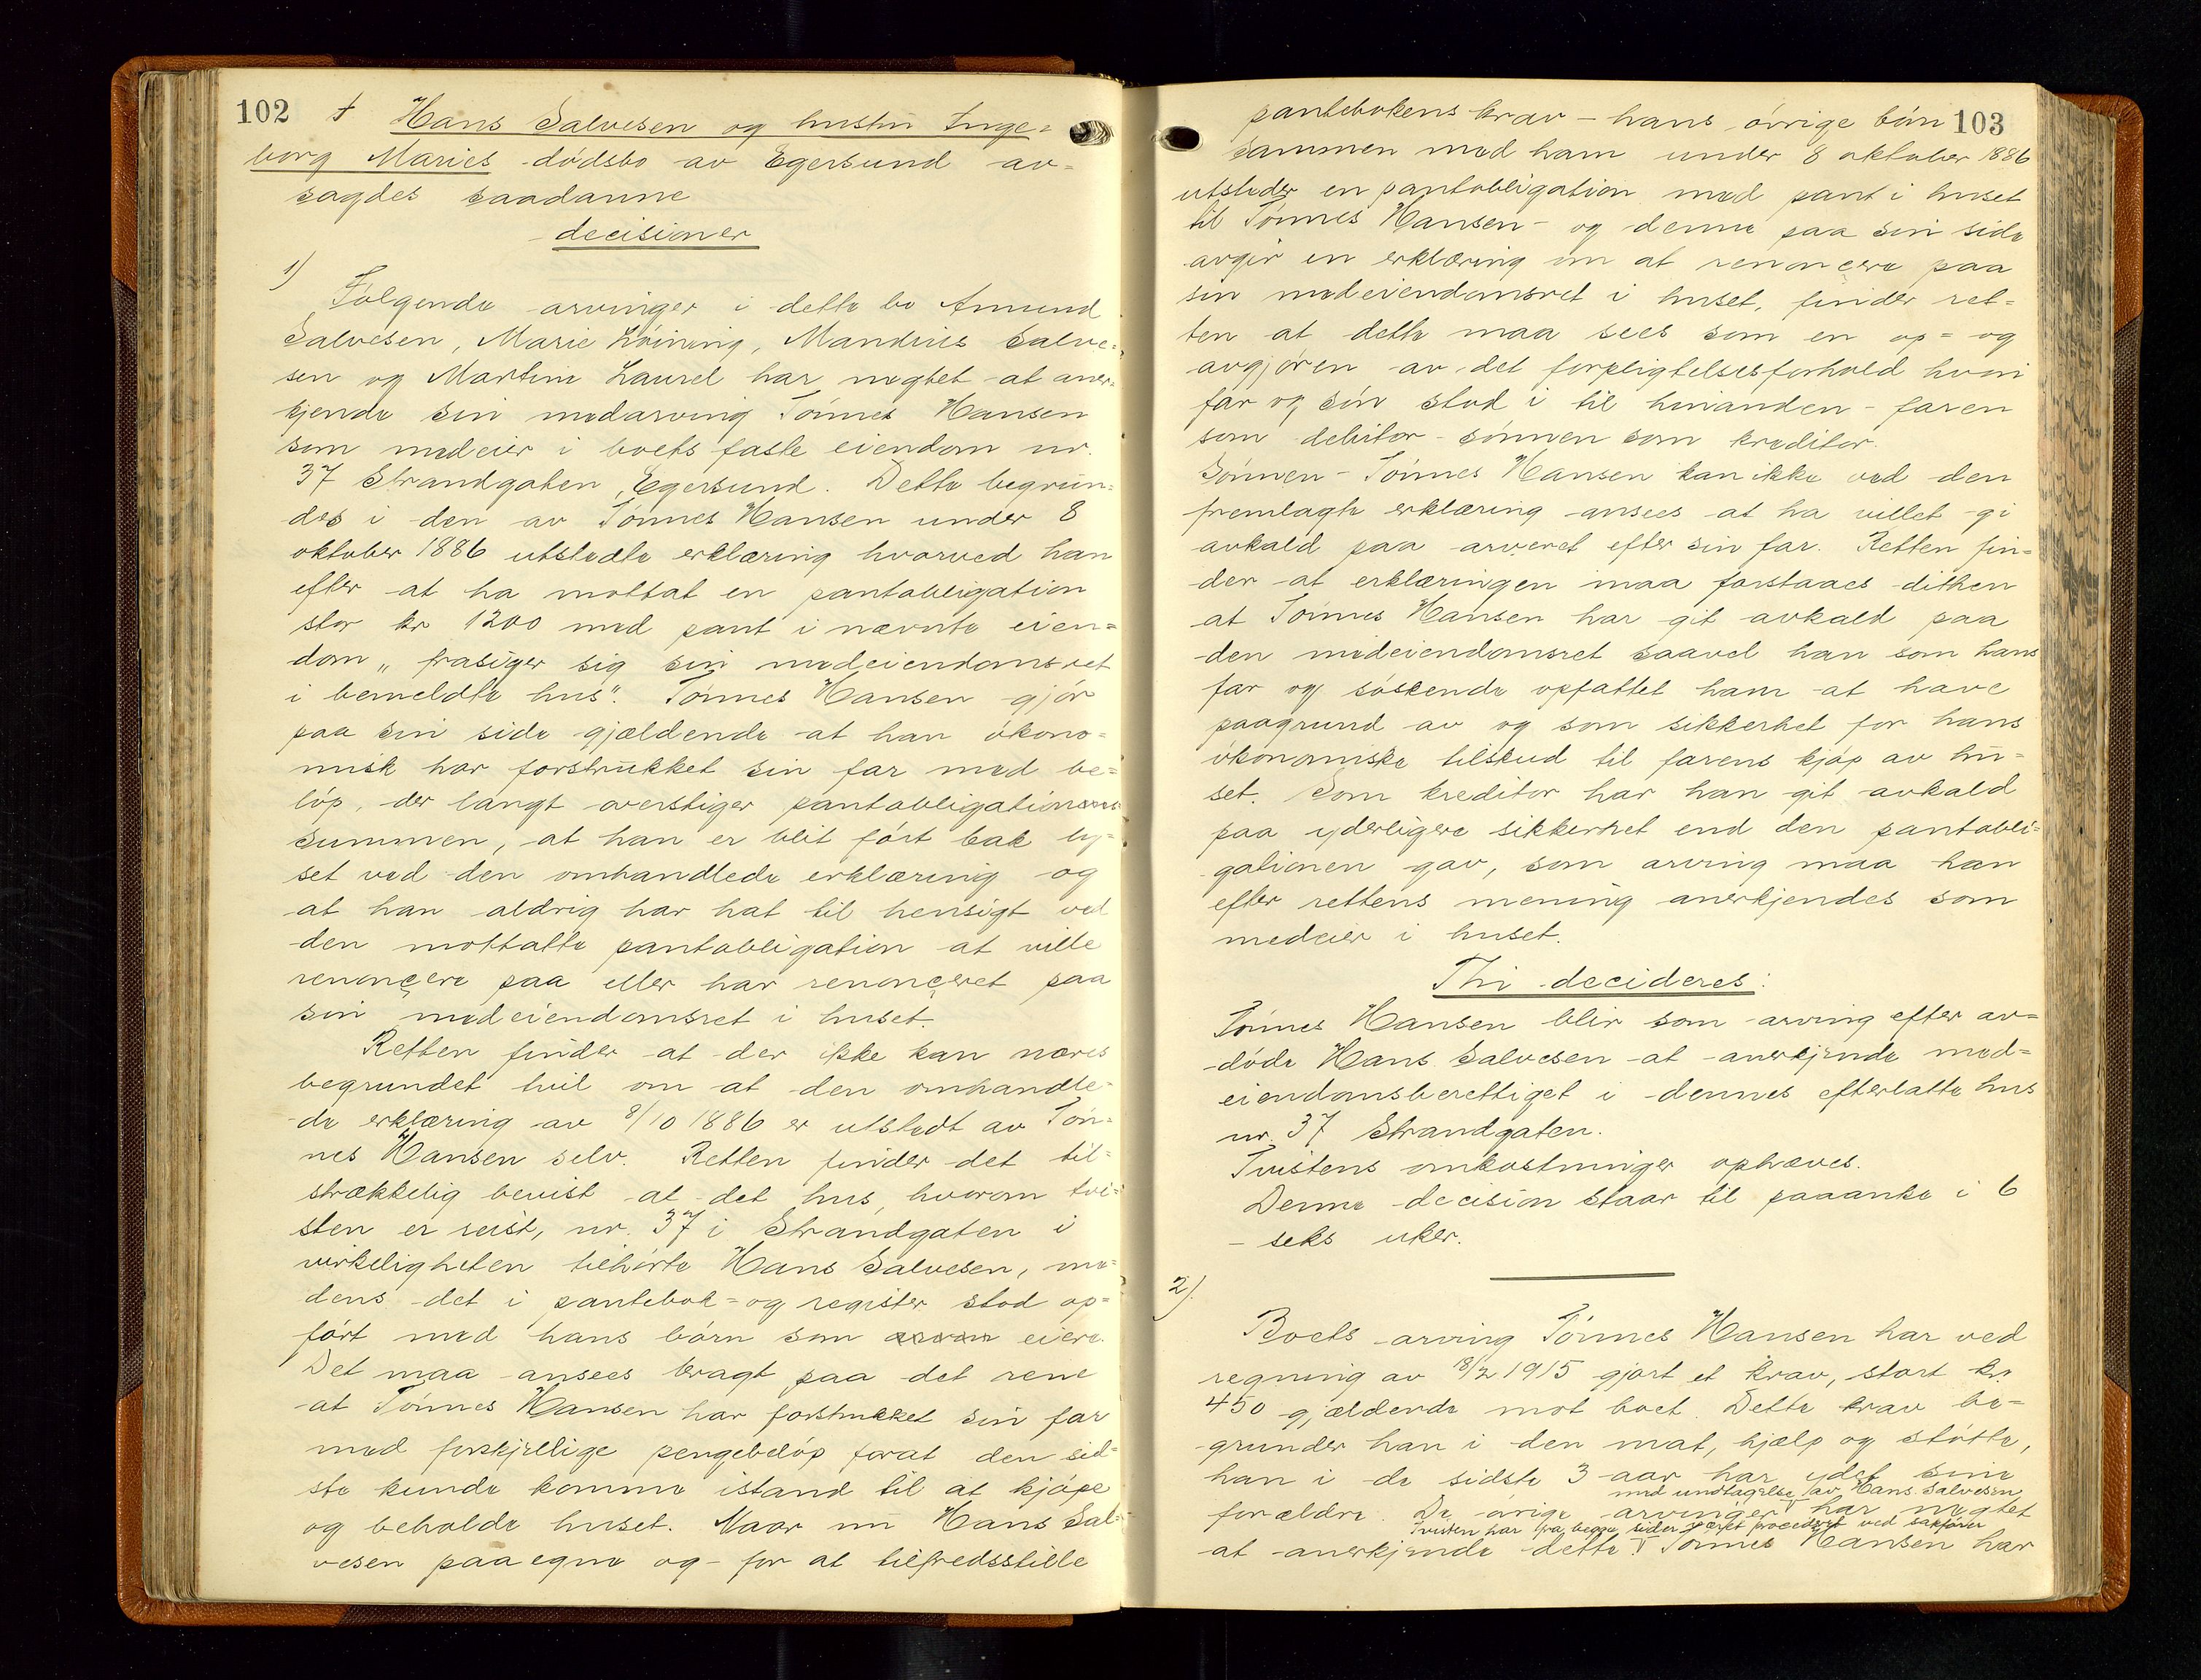 102 † Hans Salvesen og hustru Inge=
borg Maries dødsbo av Egersund av=
sagdes saadanne
decisioner
1)
Følgende arvinger i dette bo Amund
Salvesen, Marie Löining, Mandrus Salve=
sen og Martine Laurel har negtet at aner=
kjende sin medarving Tönnes Hansen
som medeier i boets faste eiendom nr.
37 Strandgaten, Egersund. Dette begrun=
des i den av Tönnes Hansen under 8
oktober 1886 utstedte erklæring hvorved han
efter at ha mottat en pantobligation
stor kr 1200 med pant i nævnte eien=
dom „frasiger sig sin medeiendomsret
i bemeldte hus". Tönnes Hansen gjör
paa sin side gjældende at han ökono=
misk har forstrukket sin far med be=
löp, der langt overstiger pantobligations
summen, at han er blit fört bak ly=
set ved den omhandlede erklæring og
at han aldrig har hat til hensigt ved
den mottatte pantobligation at ville
renonçere paa eller har renonçeret paa
sin medeiendomsret i huset.
Retten finder at der ikke kan næres
begrundet tvil om at den omhandle=
de erklæring av 8/10 1886 er utstedt av Tön=
nes Hansen selv. Retten finder det til=
strækkelig bevist at det hus, hvorom tvi=
sten er reist, nr. 37 i Strandgaten i
virkeligheten tilhörte Hans Salvesen, me=
dens det i pantebok= og register stod op=
fört med hans börn som eiere.
Det maa ansees bragt paa det rene
at Tönnes Hansen har forstrukket sin far
med forskjellige pengebelöp forat den sid=
ste kunde komme istand til at kjöpe
og beholde huset. Naar nu Hans Sal=
vesen paa egne og - for at tilfredsstille
pantebokens krav - hans övrige börn 103
sammen med ham under 8 oktober 1886
utsteder en pantobligation med pant i huset
til Tönnes Hansen - og denne paa sin side
avgir en erklæring om at renonçere paa
sin medeiendomsret i huset, finder ret=
ten at dette maa sees som en op= og
avgjören av det forpligtelsesforhold hvori
far og sön stod i til hinanden - faren
som debitor - sönnen som kreditor.
Sönnen - Tönnes Hansen kan ikke ved den
fremlagte erklæring ansees at ha villet gi
avkald paa arveret efter sin far. Retten fin=
der at erklæringen maa forstaaes dithen
at Tönnes Hansen har git avkald paa
den medeiendomsret saavel han som hans
far og söskende opfattet ham at have
paagrund av og som sikkerhet for hans
ökonomiske tilskud til farens kjöp av hu=
set. Som kreditor har han git avkald
paa yderligere sikkerhet end den pantobli=
gationen gav, som arving maa han
efter rettens mening anerkjendes som
medeier i huset.
Thi decideres:
Tönnes Hansen blir som arving efter av=
döde Hans Salvesen at anerkjende med=
eiendomsberettiget i dennes efterlatte hus
nr. 37 Strandgaten.
Tvistens omkostninger ophæves.
Denne decision staar til paaanke i 6
- seks uker.
2).
Boets arving Tönnes Hansen har ved
regning av 18/2 1915 gjort et krav, stort kr
450 gjældende mot boet. Dette krav be=
grunder han i den mat, hjælp og stötte,
han i de sidste 3 aar har ydet sine
med undtagelse av Hans Salvesen
forældre. De övrige arvinger har negtet
Tvisten har fra begge sider været procederet ved sakförer
at anerkjende dette. Tönnes Hansen har